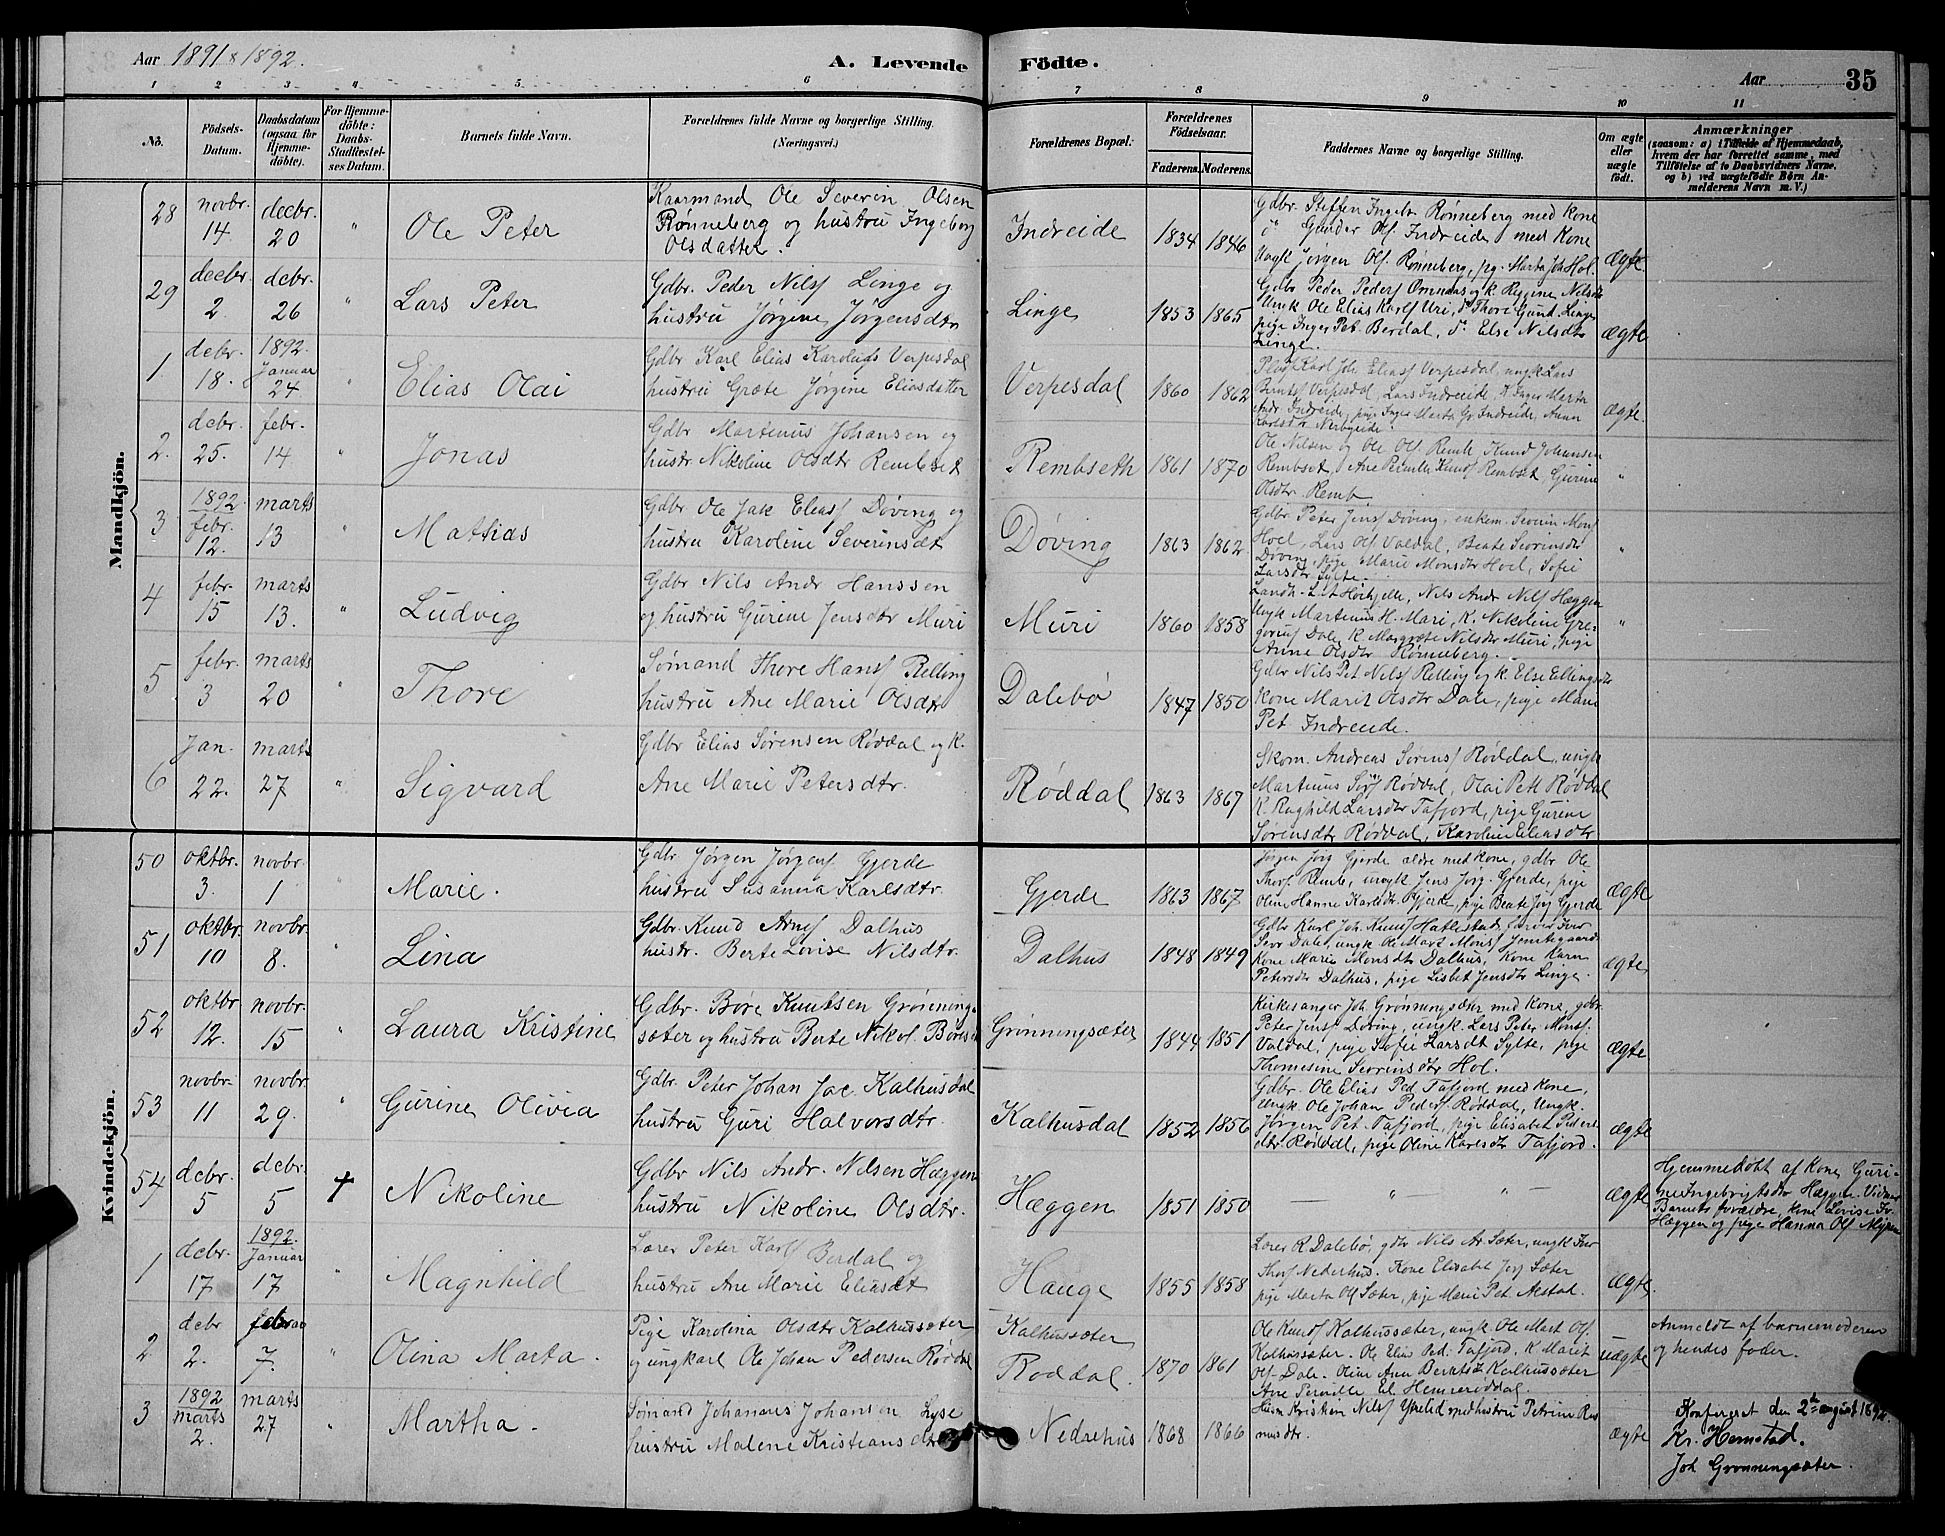 Aar 1891 & 1892.
A. Levende Födte.
Aar 35
1 2 3 4 5 6 7 8 9 10 11
No.
Födsels-Datum.
Daabsdatum (ogsaa for Hjemme-döbte).
For Hjemme-döbte: Daabs-Stadfæstel-ses Datum.
Barnets fulde Navn.
Forældrenes fulde Navne og borgerlige Stilling. (Næringsvei.)
Forældrenes Bopæl.
Forældrenes Födselsaar.
Faderens. Moderens.
Faddernes Navne og borgerlige Stilling.
Om ægte eller uægte födt.
Anmærkninger
(saasom: a) i Tilfælde af Hjemmedaab,
hvem der har forrettet samme, med
Tilföielse af to Daabsvidners Navne,
og b) ved uægtefödte Börn An-
melderens Navn m. V.)
Mandkjön.
28 novbr. 14. decbr. 20 " Ole Peter
Kaarmand Ole Severin Olsen
Rønneberg og hustru Ingeborg
Olsdatter.
Indreide 1834 1846
Gdbr. Steffen Ingebr Rønneberg med Kone
Gunder Ols. Indreide med Kone
Ungk Jørgen Ols. Rønneberg, pg. Marta Joh Hol.
Ægte.
29 decbr. 2. debr. 26 " Lars Peter
Gdbr. Peder Nils Linge og
hustru Jørgine Jørgensdtr
Linge 1853 1865
Gdbr Peder Peders Omenaas og k. Regine Nilsdtr
Ungk Ole Elias Karls Uri, do Thore Gund. Linge
pige Inger Pet. Berdal, do. Else Nilsdtr
Linge.
Ægte
1 debr. 18. 1892. Januar 24 " Elias Olai
Gdbr Karl Elias Karolus Verpesdal
hustru Græte Jørgine Eliasdatter
Verpesdal 1860 1862
Karl Joh. Elias Verpesdal, ungk Lars
Bernts Verpesdal, Lars Indreeide, K Inger Marta
Andr. Indreide, pige Inger Marta Gr. Indreide, Anna
ægte.
2. debr. 25. febr. 14 " Jonas
Gdbr Martinus Johansen og
hustr. Nikoline Olsdtr Rembset
Rembseth 1861 1870
Ole Nilsen og Ole Ols. Remb, Knud Johansen
Rembset, Ane Pernille Knuds Rembset, Gurine
Olsdtr. Remb
"
3 1892. febr. 12. marts 13 " Mathias
Gdbr Ole Jak Elias Døving og
hustru Karoline Severinsdt
Døving 1863 1862
Gdbr Peter Jens Døving, enkem. Severin Mons
Hoel, Lars Ols. Valdal, Beate Severinsdtr
Døving, pige Marie Monsdtr Hoel, Sofie
Larsdtr Sylte.
"
4 febr. 15 marts 13. " Ludvig
Gdbr Nils Andr Hanssen
og hustru Gurine Jensdtr Muri
Muri 1860 1858
Landh. Høihjelle, Nils Andr Nils Hæggen
Ungk Martinus H. Muri, K. Nikoline Gre-
gorius Dale, K Margrete Nilsdtr Muri, pige
Anne Olsdtr Rønneberg.
"
5 febr. 3 marts 20 " Thore
Sømand Thore Hans Relling
hustru Ane Marie Olsdtr
Dalebø 1847 1850
Gdbr Nils Pet Nils Relling og k. Else Ellingsdtr
Kone Marit Olsdtr Dale, pige Marie
Pet. Indreeide.
6 Jan. 22. marts 27 " Sigvard
Gdbr Elias Sørensen Røddal og K.
Ane Marie Petersdtr.
Røddal 1863 1867
Skom. Andreas Sørens Røddal, ungk
Martinus Sørs Røddal, Olai Pett Røddal
K Raghild Larsdtr Tafjord, pige Gurine
Sørensdtr Røddal, Karoline Eliasdtr
Kvindekjön.
50 oktbr. 3. novbr. 1 " Marie.
Gdbr Jørgen Jørgens Gjerde
hustru Susanna Karlsdtr.
Gjerde 1863 1867
Jørgen Jørg Gjerde ældre med Kone, gdbr Ole
Thors. Remb, ungk. Jens Jørg. Gjerde, pige
Oline Hanne Karlsdtr Gjerde, pige Beate Jørg Gjerde
ægte
51 oktbr. 10 novbr. 8. " Lina
Gdbr. Knud Arnes Dalhus
hustr. Berte Lovise Nilsdtr.
Dalhus 1848 1849
Gdbr Karl Joh. Knuds Hatlestad, Iver
Sevr Dale, ungk Ole Mart Mons Jomtegaard
Kone Marie Monsdtr Dalhus, Kone Karn
Petersdtr Dalhus, pige Lisbet Jensdtr Linge.
ægte
52 oktbr. 12. novbr. 15 " Laura Kristine
Gdbr. Børe Knutsen Grønning-
sæter og hustru Berte Nikol. Børes
Grønningsæter 1844 1851
Kirkesanger Joh. Grønningsæter med Kone, gdbr.
Peter Jens Døving, ungk. Lars Peter Mons.
Valdal, pige Sofie Larsdt Sylte, pige
Thomesine Severinsdtr Hol.
ægte
53 novbr. 11 novbr. 29. " Gurine Olivia
Gdbr. Peter Johan Jac. Kalhusdal
hustru Guri Halvorsdtr.
Kalhusdal 1852 1856
Gdbr. Ole Elias Ped Tafjord med Kone,
Ungk. Ole Johan Peders. Røddal, Ungk.
Jørgen Pet. Tafjord, pige Elisabet Peders
dtr Røddal, pige Oline Karlsdtr Tafjord.
ægte
54 debr. 5 debr. 5 † Nikoline
Gdbr Nils Andr. Nilsen Hæggen
hustru Nikoline Olsdtr.
Hæggen 1851 1850
— " — " —
ægte
Hjemmedøbt af Kone Guri-
ne Ingebrigtsdtr Hæggen. Vidner
Barnets forældre, kone Lovise Iv.
Hæggen og pige Hanna Ols. Myren
1 debr. 17 1892. Januar 17 " Magnhild
Lærer Peter Karls Berdal og
hustru Ane Marie Eliasdt
Hauge 1855 1858
Lærer R Dalebø, gdbr Nils Ar. Sæter, ungk Iver
Thors Nederhus. Kone Elisabet Jørg Sæter
pige Marta Ols Sæter, pige Marie Pet. Alstad.
ægte.
2 debr 2. februar 7. " Olina Marta.
Pige Karolina Olsdtr Kalhussæter,
og ungkarl Ole Johan Pedersen Røddal
Kalhussæter
Røddal. 1870 1861
Ole Knuds Kalhussæter, ungk Ole Mart Ols.
Kalhussæter. Ole Elias Ped. Tafjord, K Marit
Ols. Dale. Oline Ann Berntsdt Kalhussæter
Ane Pernille El. Hemreøddal.
uægte
Anmeldt af barnemoderen
og hendes fader.
3 1892 marts 2. marts 27 Martha.
Sømand Johannes Johansen Lyse
hustru Malene Kristiansdtr
Nedrehus 1868 1866
Husm Kristian Nils Ytrelid med hustru Petrine Ras
musdtr.
ægte
Konfereret den 2den august 1892.
Kr. Hemstad.
Joh Grønningsæter.